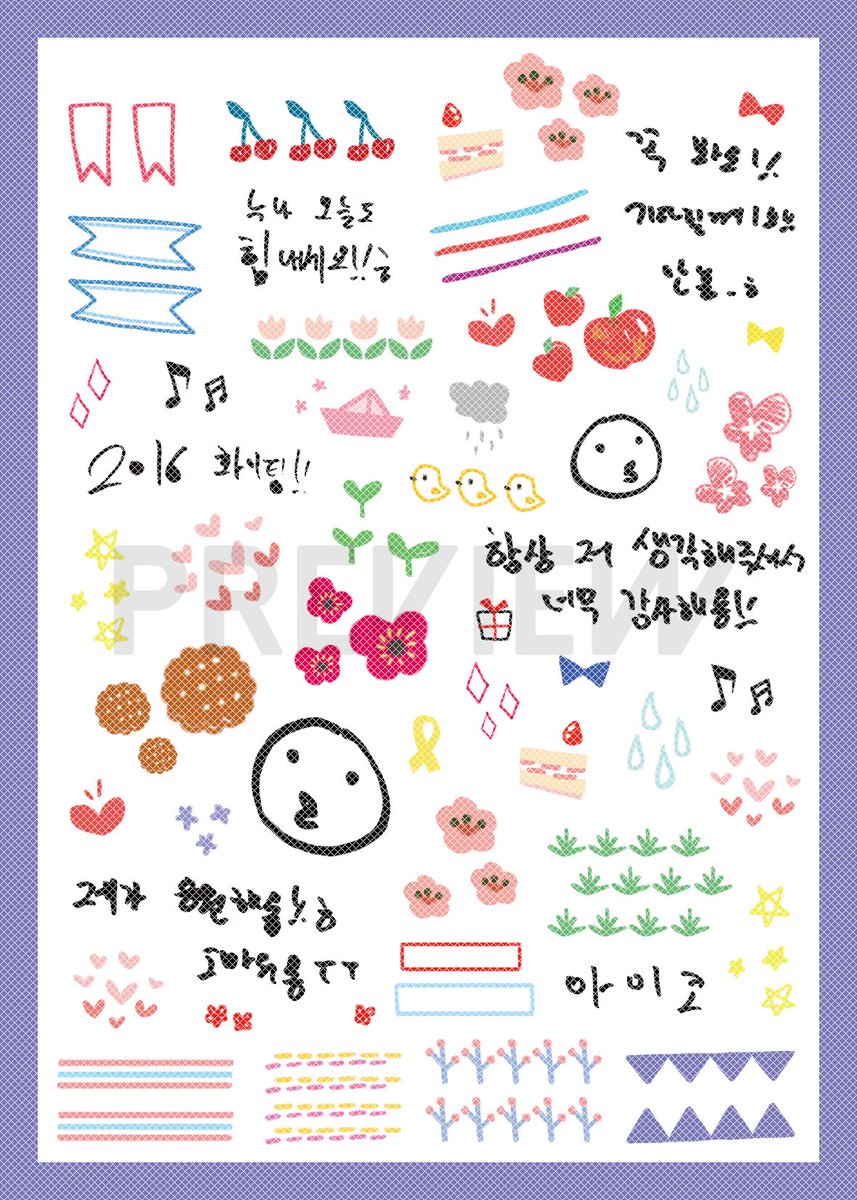 꼭 봐요!!
늑나 오늘도
힘내세요!!승
기다릴께요
안뇽..ㅎ
2016 화이팅!!
PREVIEW
항상 저 생각해주셔서
너무 감사해용
제가 응원해줄
고마워용ㅜㅜ
아이코